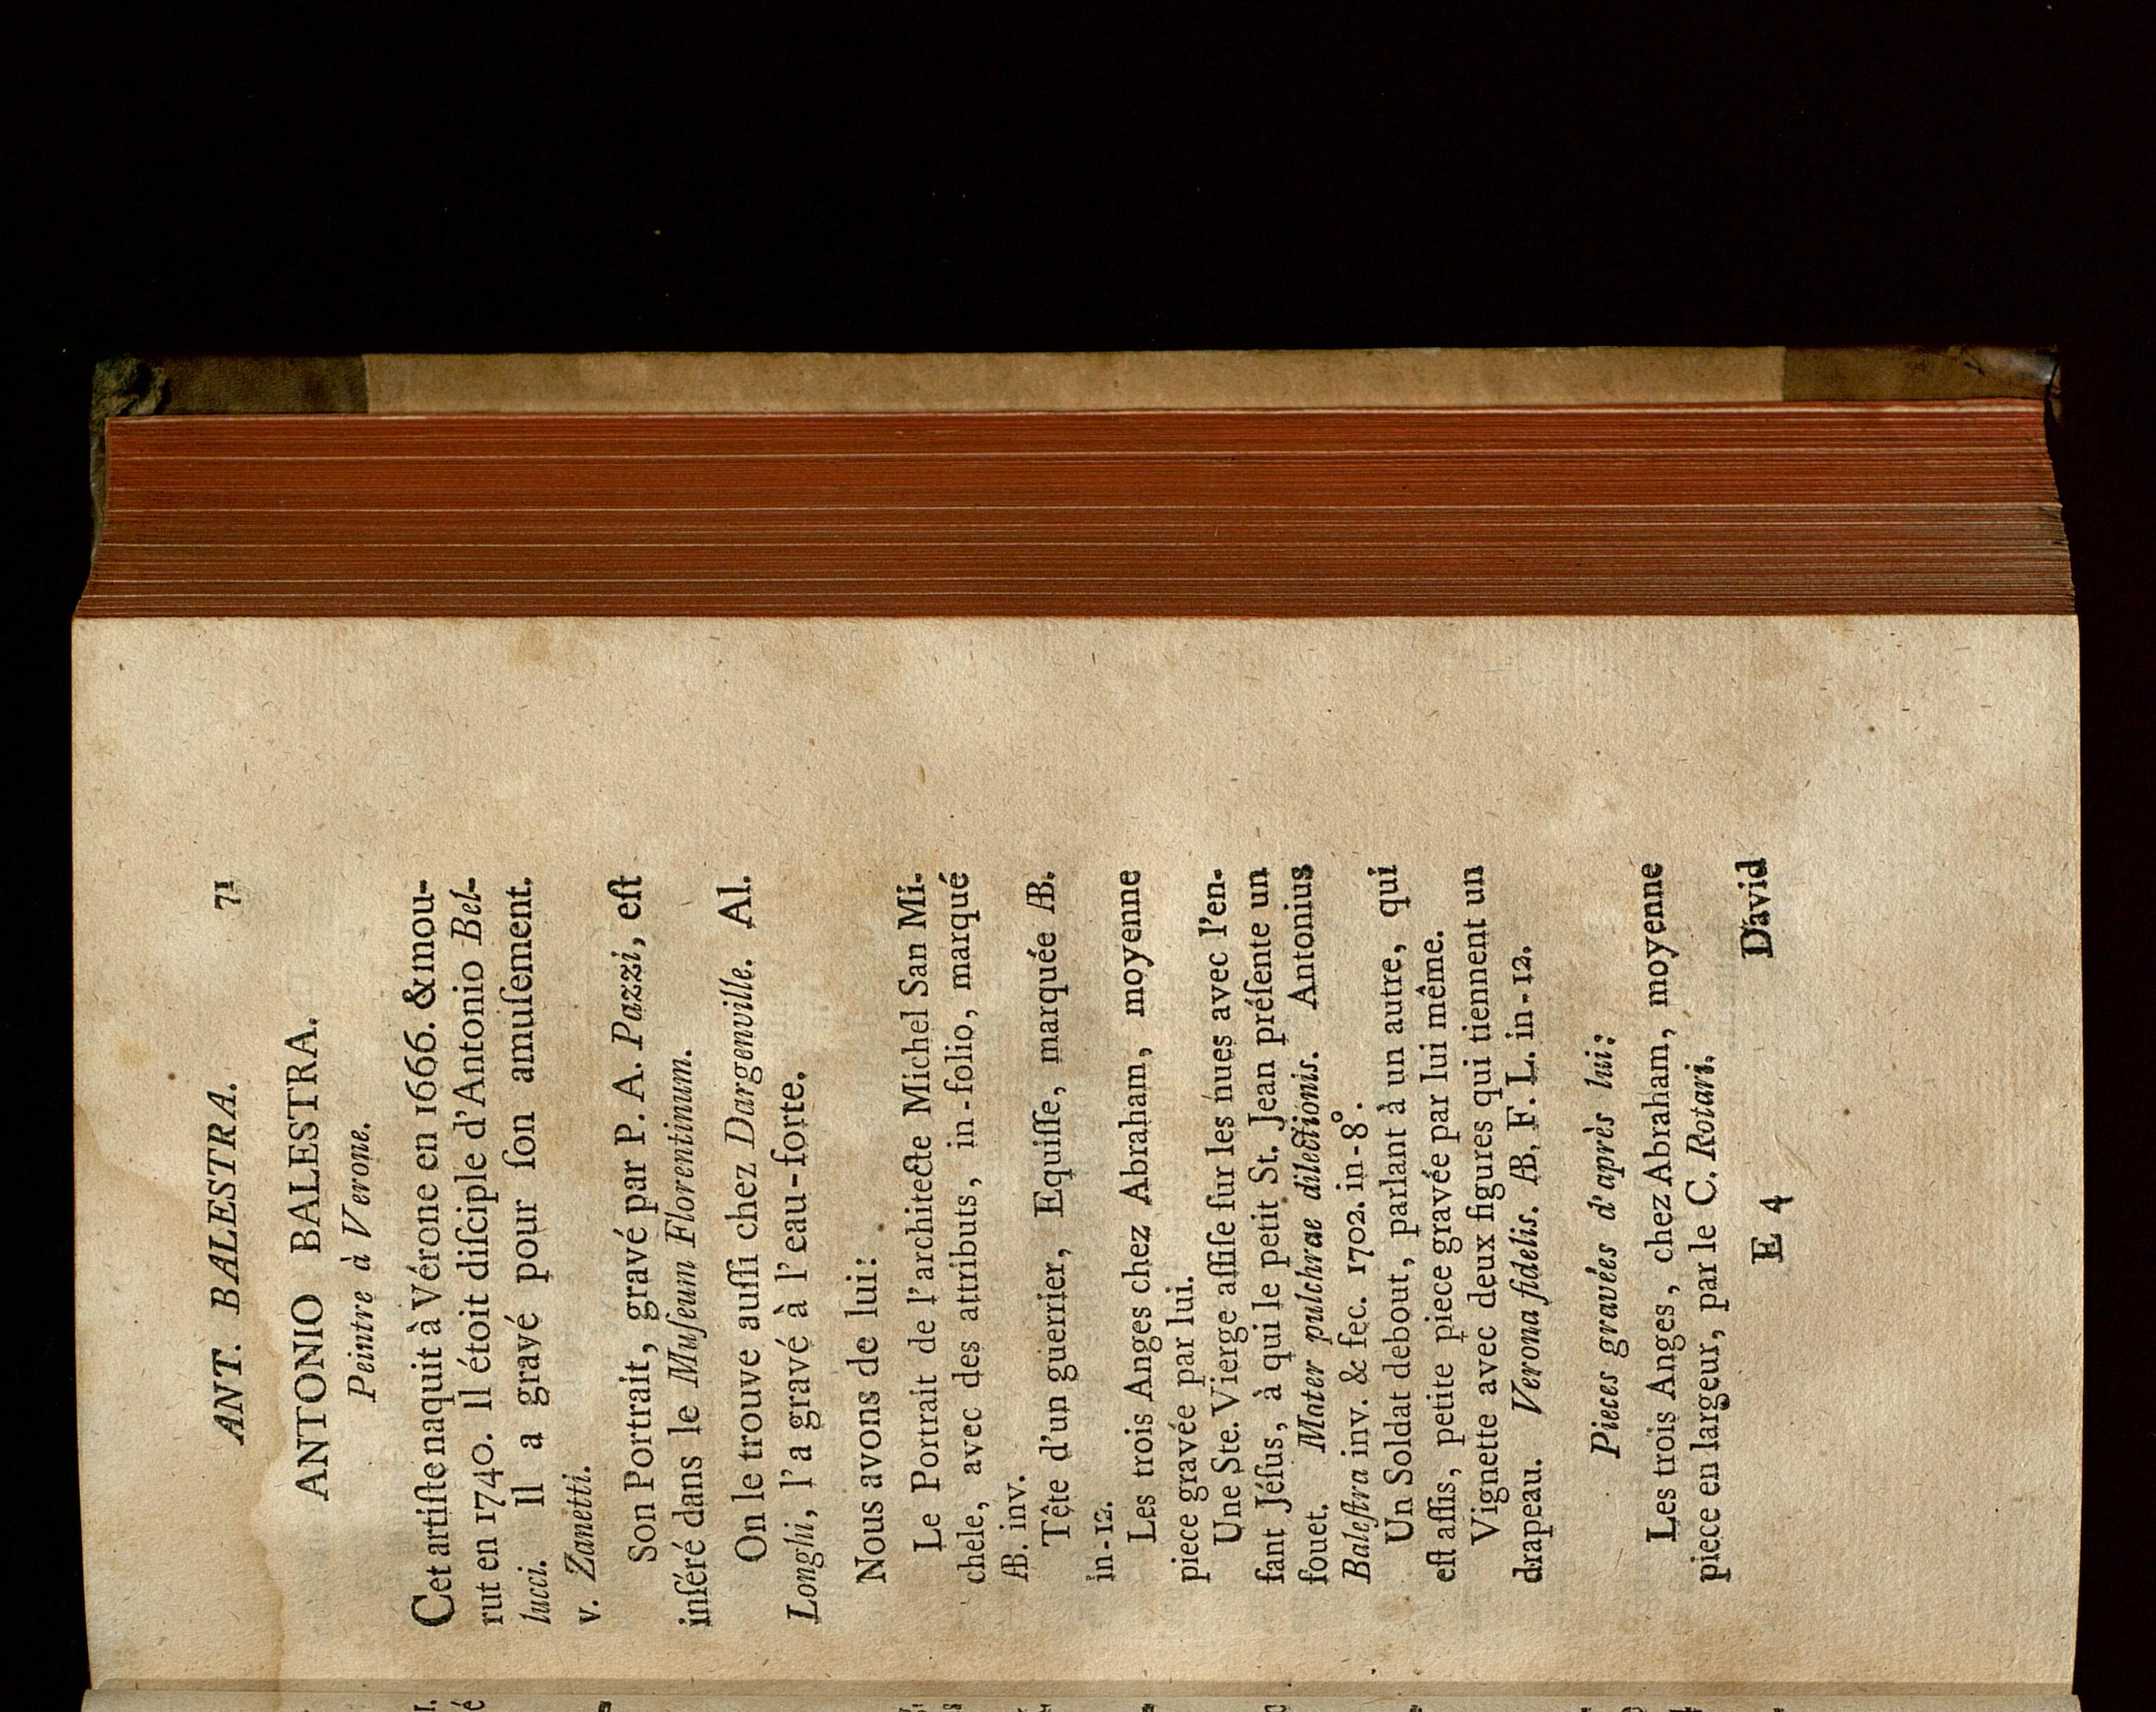 ANT. BALESTRA. 71
ANTONIO BALESTRA.
Peintre à Verone.
Cet artiſte naquit à Vérone en 1666. & mou-
rut en 1740. Il étoit diſciple d'Antonio Bel-
lucci. Il a gravé pour ſon amuſement.
v. Zanetti.
Son Portrait, gravé par P. A. Pazzi, eſt
inſéré dans le Muſeum Florentinum.
On le trouve auſſi chez Dargenville. Al.
Longhi, l'a gravé à l'eau-forte.
Nous avons de lui:
Le Portrait de l'architecte Michel San Mi-
chele, avec des attributs, in-folio, marqué
Æ. inv.
Tête d'un guerrier, Equiſſe, marquée Æ.
in-12.
Les trois Anges chez Abraham, moyenne
piece gravée par lui.
Une Ste. Vierge aſſiſe ſur les nues avec l'en-
fant Jéſus, à qui le petit St. Jean préſente un
fouet. Mater pulchrae dilectionis. Antonius
Baleſtra inv. & fec. 1702. in-8°.
Un Soldat debout, parlant à un autre, qui
eſt aſſis, petite piece gravée par lui même.
Vignette avec deux figures qui tiennent un
drapeau. Verona fidelis. Æ, F. L. in-12.
Pieces gravées d'après lui:
Les trois Anges, chez Abraham, moyenne
piece en largeur, par le C. Rotari.
E 4 David